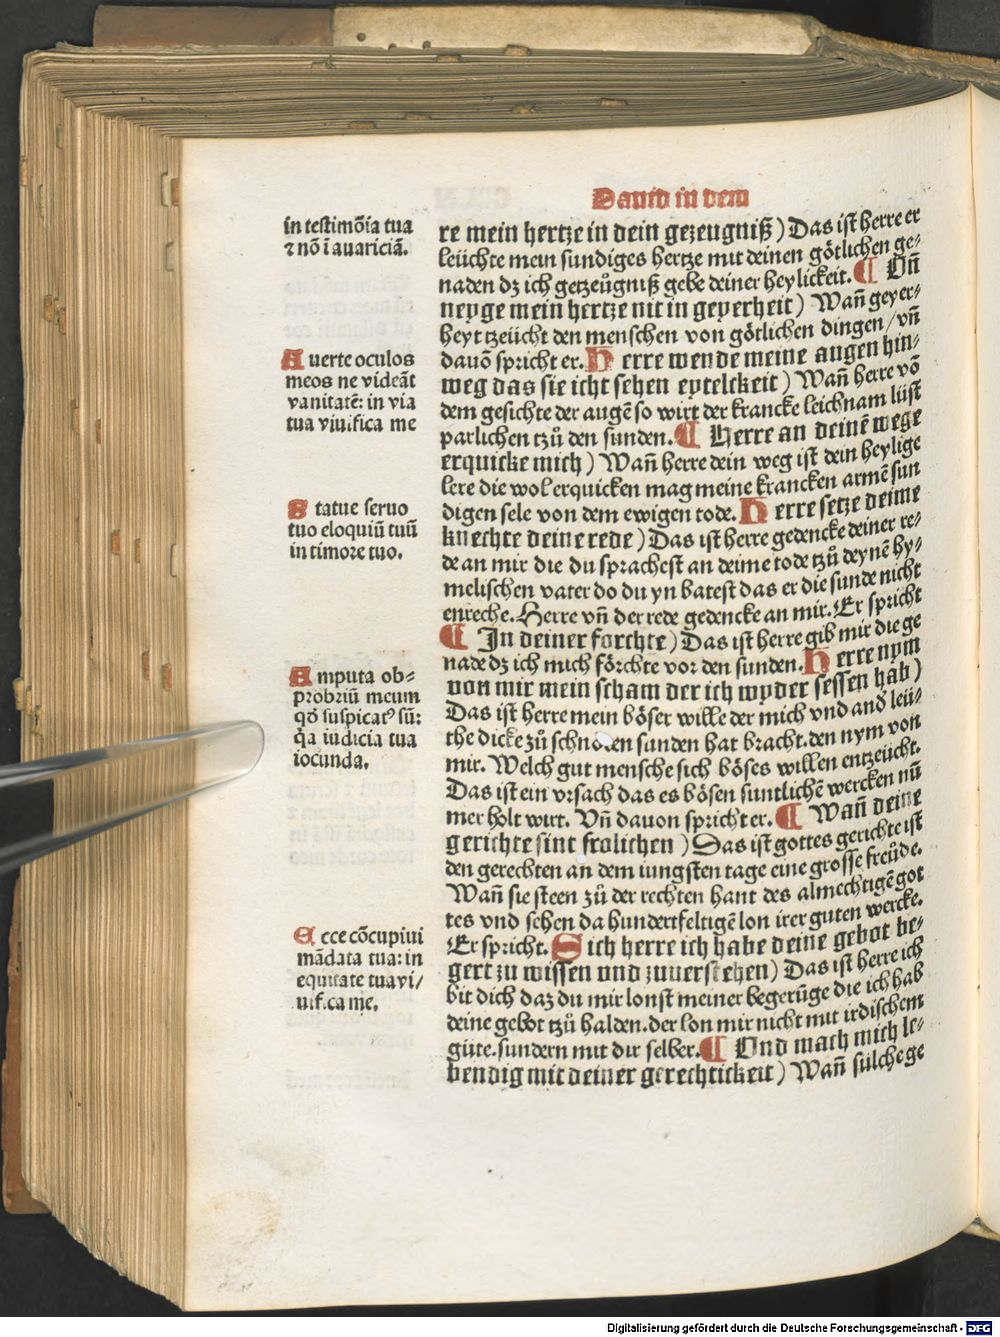 Dauid in dem
in testimõia tua
⁊ nõ ĩ auariciã.
Auerte oculos
meos ne videãt
vanitatẽ: in via
tua viuifica me
Statue seruo
tuo eloquiũ tuũ
in timore tuo.
Amputa ob⸗
probriũ meum
qð suspicatꝰ sũ:
q̃a iudicia tua
iocunda.
Ecce cõcupiui
mãdata tua: in
equitate tua vi/
uifica me.
re mein hertze in dein gezeugniß) Das ist herre er
leüchte mein sundiges hertze mit deinen götlichen ge⸗
naden dz ich getzeůgniß gebe deiner heylickeit. ¶ Vñ
neyge mein hertze nit in geyerheit) Wañ geyer⸗
heyt tzeücht den menschen von götlichen dingen/ vñ
dauõ spricht er. Herre wende meine augen hin⸗
weg das sie icht sehen eytelckeit) Wañ herre võ
dem gesichte der augẽ so wirt der krancke leichnam lüst
parlichen tzů den sunden. ¶ Herre an deinẽ wege
erquicke mich) Wañ herre dein weg ist dein heylige
lere die wol erquicken mag meine krancken armẽ sun
digen sele von dem ewigen tode. Herre setze deime
knechte deine rede) Das ist herre gedencke deiner re⸗
de an mir die du sprachest an deime tode tzů deynẽ hy⸗
melischen vater do du yn batest das er die sunde nicht
enreche. Herre vñ der rede gedencke an mir. Er spricht
¶ In deiner forchte) Das ist herre gib mir die ge
nade dz ich mich förchte vor den sunden. Herre nym
von mir mein scham der ich wyder sessen hab)
Das ist herre mein böser wille der mich vnd and leü⸗
the dicke zů schnoden sunden hat bracht. den nym von
mir. Welch gut mensche sich böses willen entzeücht.
Das ist ein vrsach das es bösen suntlichẽ wercken nü
mer holt wirt. Vñ dauon spricht er. ¶ Wañ deine
gerichte sint frolichen) Das ist gottes gerichte ist
den gerechten an dem iungsten tage eine grosse freůde.
Wañ sie steen zů der rechten hant des almechtigẽ got
tes vnd sehen da hundertfeltigẽ lon irer guten wercke.
Er spricht. Sich herre ich habe deine gebot be⸗
gert zu wissen vnd zuuerstehen) Das ist herre ich
bit dich daz du mir lonst meiner begerũge die ich hab
deine gebot tzů halden. der lon mir nicht mit irdischem
güte. sundern mit dir selber. ¶ Vnd mach mich le⸗
bendig mit deiner gerechtickeit) Wañ sulche ge
Digitalisierung gefördert durch die Deutsche Forschungsgemeinschaft - DFG